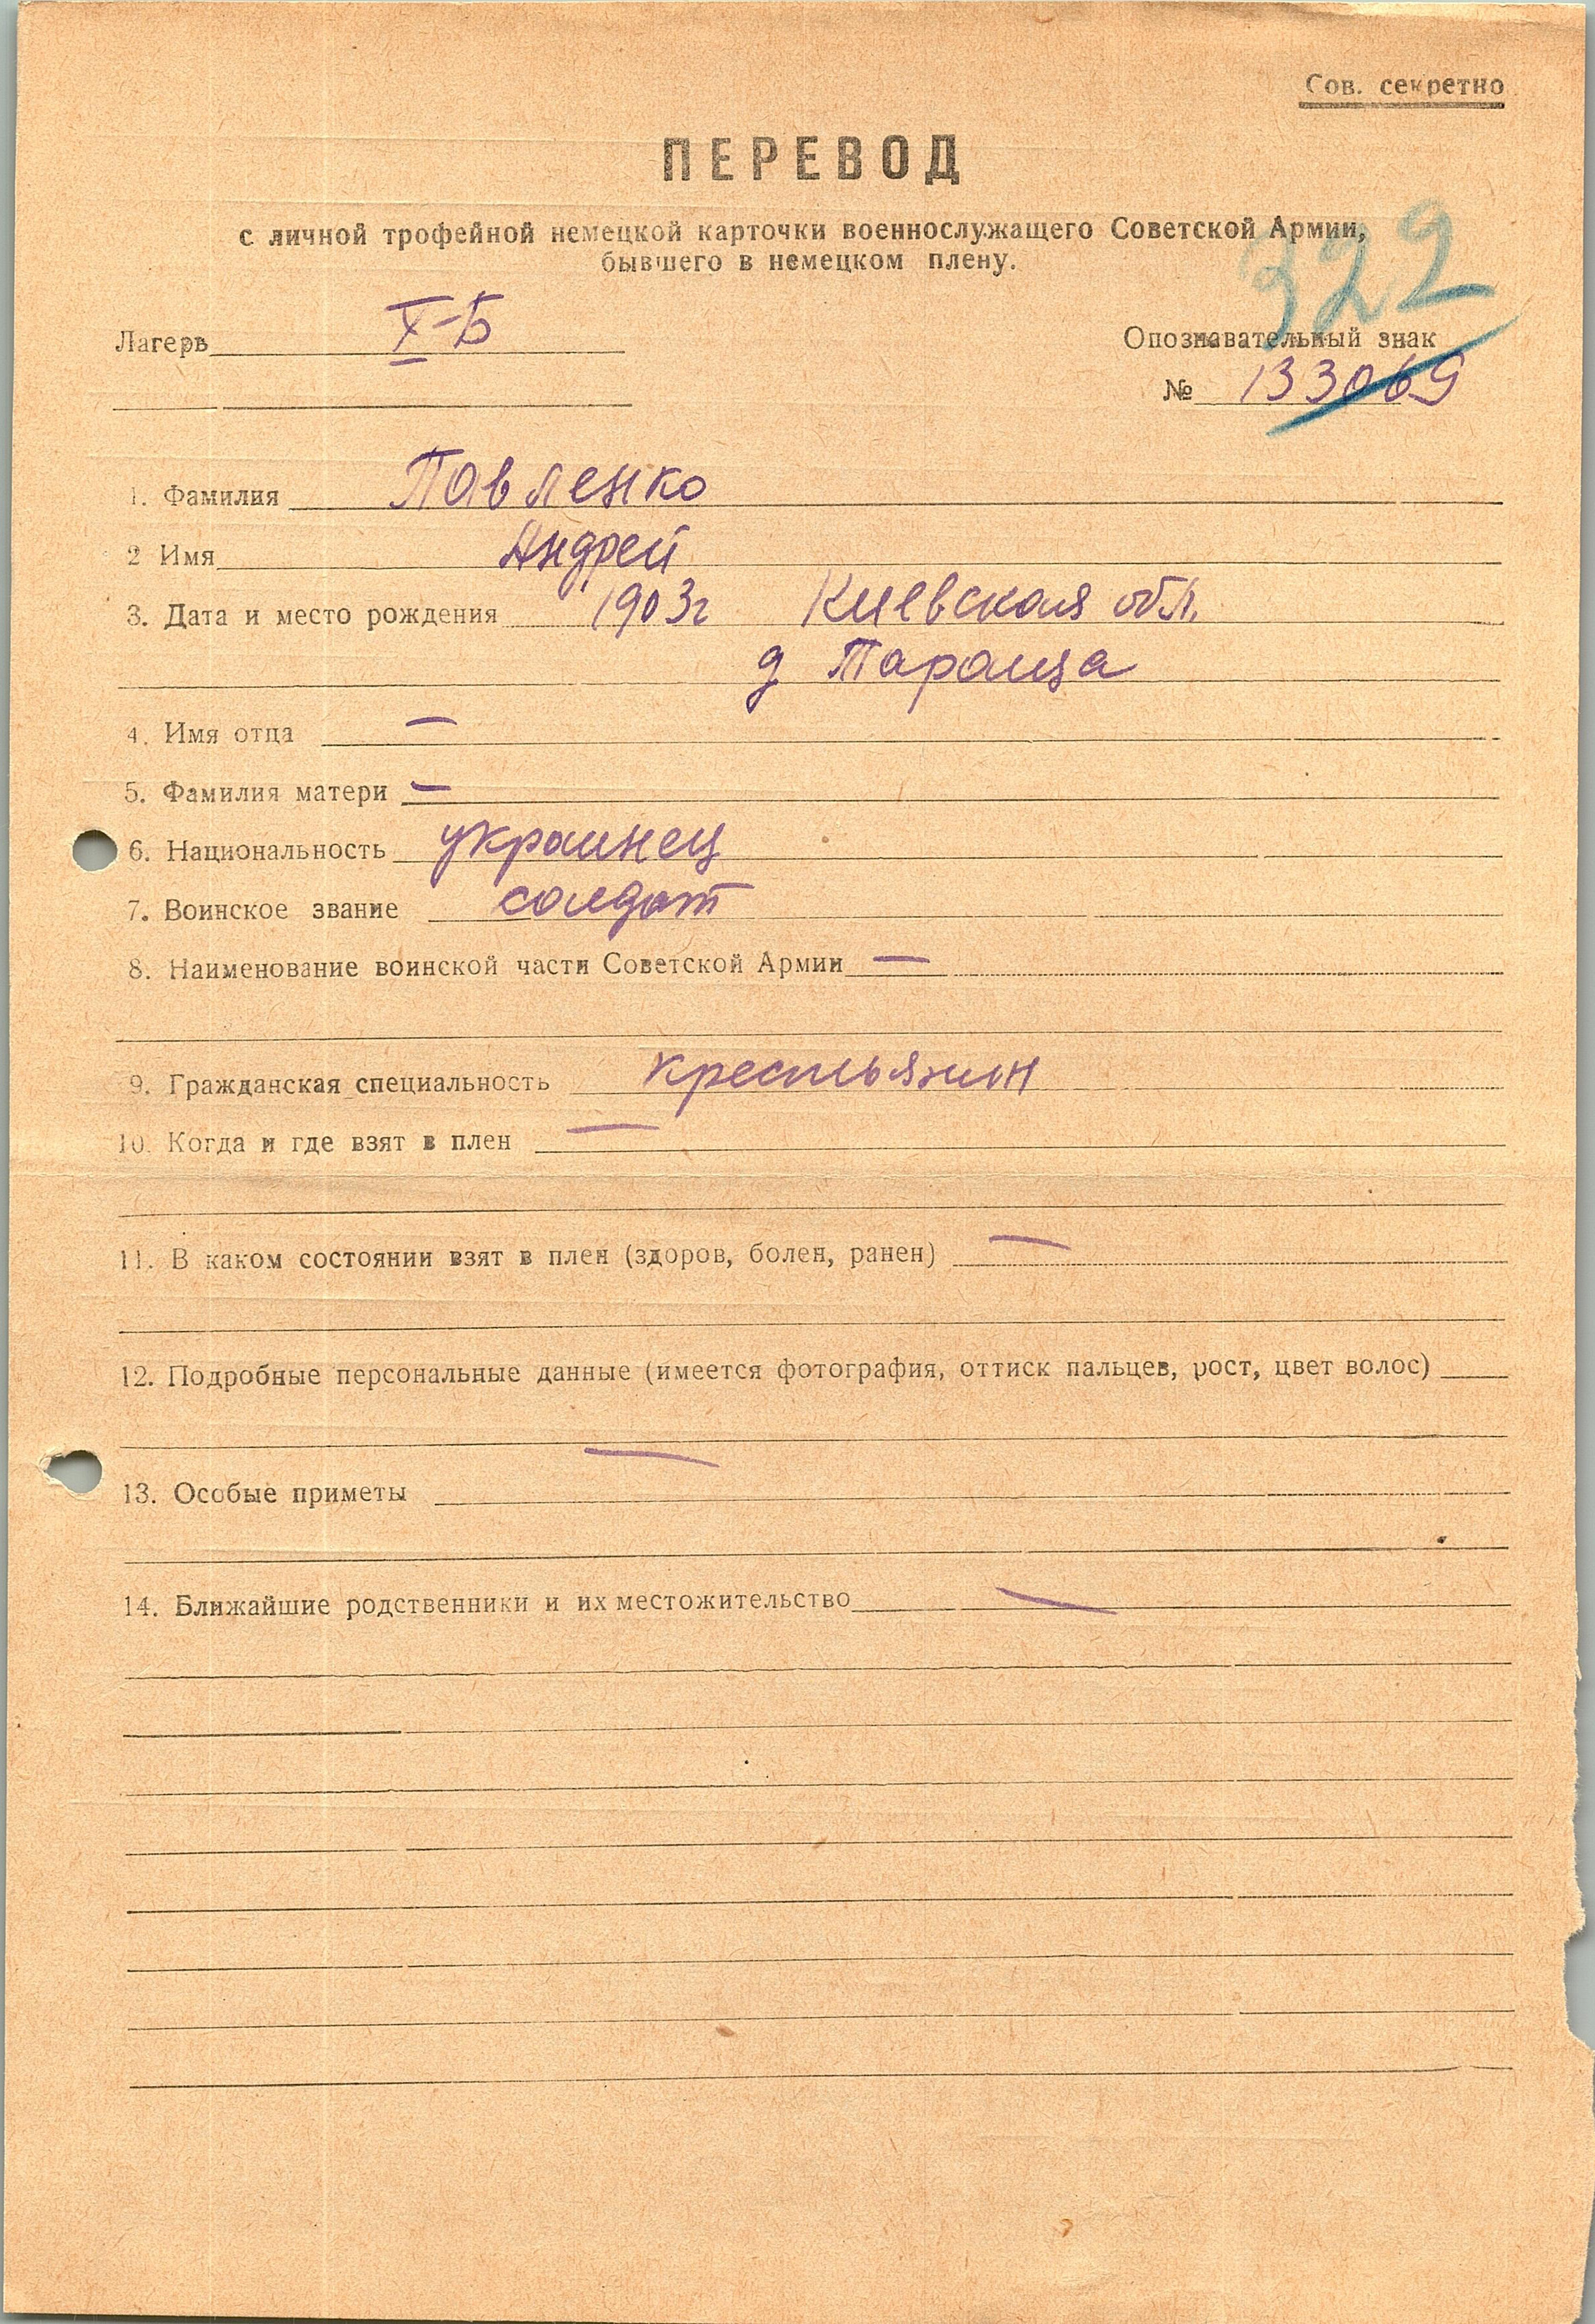 Сов. секретно
ПЕРЕВОД
с личной трофейной немецкой карточки военнослужащего Советской Армии,
бывшего в немецком плену.
322
Лагерь X-Б
Опознавательный знак
№ 133069
1. Фамилия Павленко
2 Имя Андрей
3. Дата и место рождения 1903г Киевская обл.
д Тараща
4. Имя отца —
5. Фамилия матери —
6. Национальность украинец
7. Воинское звание солдат
8. Наименование воинской части Советской Армии —
9. Гражданская специальность крестьянин
10. Когда и где взят в плен —
11. В каком состоянии взят в плен (здоров, болен, ранен) —
12. Подробные персональные данные (имеется фотография, оттиск пальцев, рост, цвет волос)
—
13. Особые приметы
14. Ближайшие родственники и их местожительство —